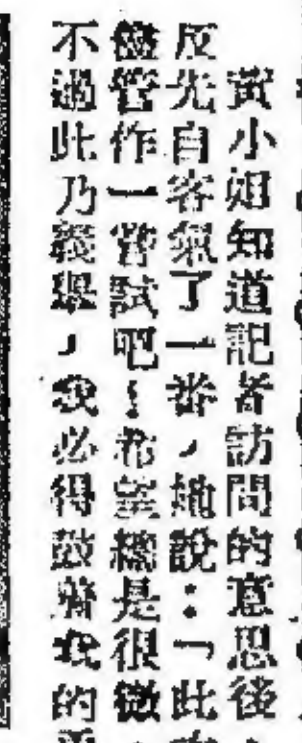 黃小姐知道記者訪問的意思後，
反先自客氣了一番，她說：「此
儘管作一嘗試吧！希望總是很微，
不過此乃義舉，我必得鼓勵我的